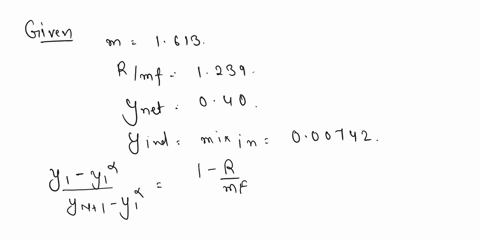 Given
m = 1.613.
R/mf = 1.239.
ynet = 0.40.
yind = mix in = 0.00742.
y1 - y1^α / yN+1 - y1^α = 1 - R/mf